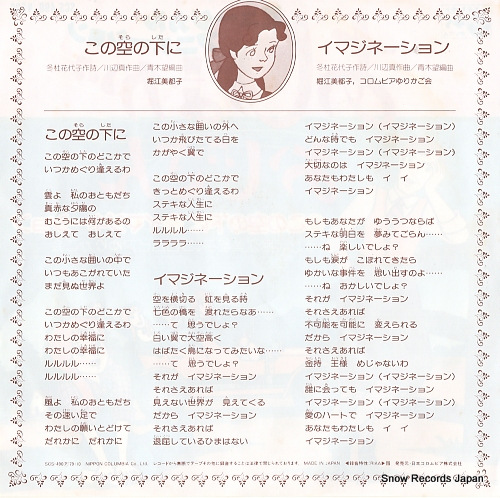 この空の下に
そら した
冬杜花代子作詩／川辺真作曲／青木望編曲
堀江美都子
イマジネーション
冬杜花代子作詩／川辺真作曲／青木望編曲
堀江美都子，コロムビアゆりかご会
この空の下に
そら した
この空の下のどこかで
いつかめぐり逢えるわ
雲よ 私のおともだち
真赤な夕陽の
むこうには何があるの
おしえて おしえて
この小さな囲いの中で
いつもあこがれていた
まだ見ぬ世界よ
この空の下のどこかで
いつかめぐり逢えるわ
わたしの幸福に
わたしの幸福に
ルルルル……
ルルルル……
風よ 私のおともだち
その速い足で
わたしの願いとどけて
だれかに だれかに
この小さな囲いの外へ
いつか飛びたてる日を
かがやく翼で
この空の下のどこかで
きっとめぐり逢えるわ
ステキな人生に
ステキな人生に
ルルルル……
ララララ……
イマジネーション
空を横切る 虹を見る時
七色の橋を 渡れたらなあ……
……て 思うでしょ？
白い翼で大空高く
はばたく鳥になってみたいな……
……て 思うでしょ？
それが イマジネーション
それさえあれば
見えない世界が 見えてくる
だから イマジネーション
それさえあれば
退屈しているひまはない
イマジネーション（イマジネーション）
どんな時でも イマジネーション
イマジネーション（イマジネーション）
大切なのは イマジネーション
あなたもわたしも イ イ
イマジネーション
もしもあなたが ゆううつならば
ステキな明日を 夢みてごらん……
……ね 楽しいでしょ？
もしも涙が こぼれてきたら
ゆかいな事件を 思い出すのよ……
……ね おかしいでしょ？
それが イマジネーション
それさえあれば
不可能を可能に 変えられる
だから イマジネーション
それさえあれば
金持 王様 めじゃないわ
イマジネーション（イマジネーション）
誰に会っても イマジネーション
イマジネーション（イマジネーション）
愛のハートで イマジネーション
あなたもわたしも イ イ
イマジネーション
NIPPON COLUMBIA Co., Ltd.
MADE IN JAPAN
Snow Records Japan